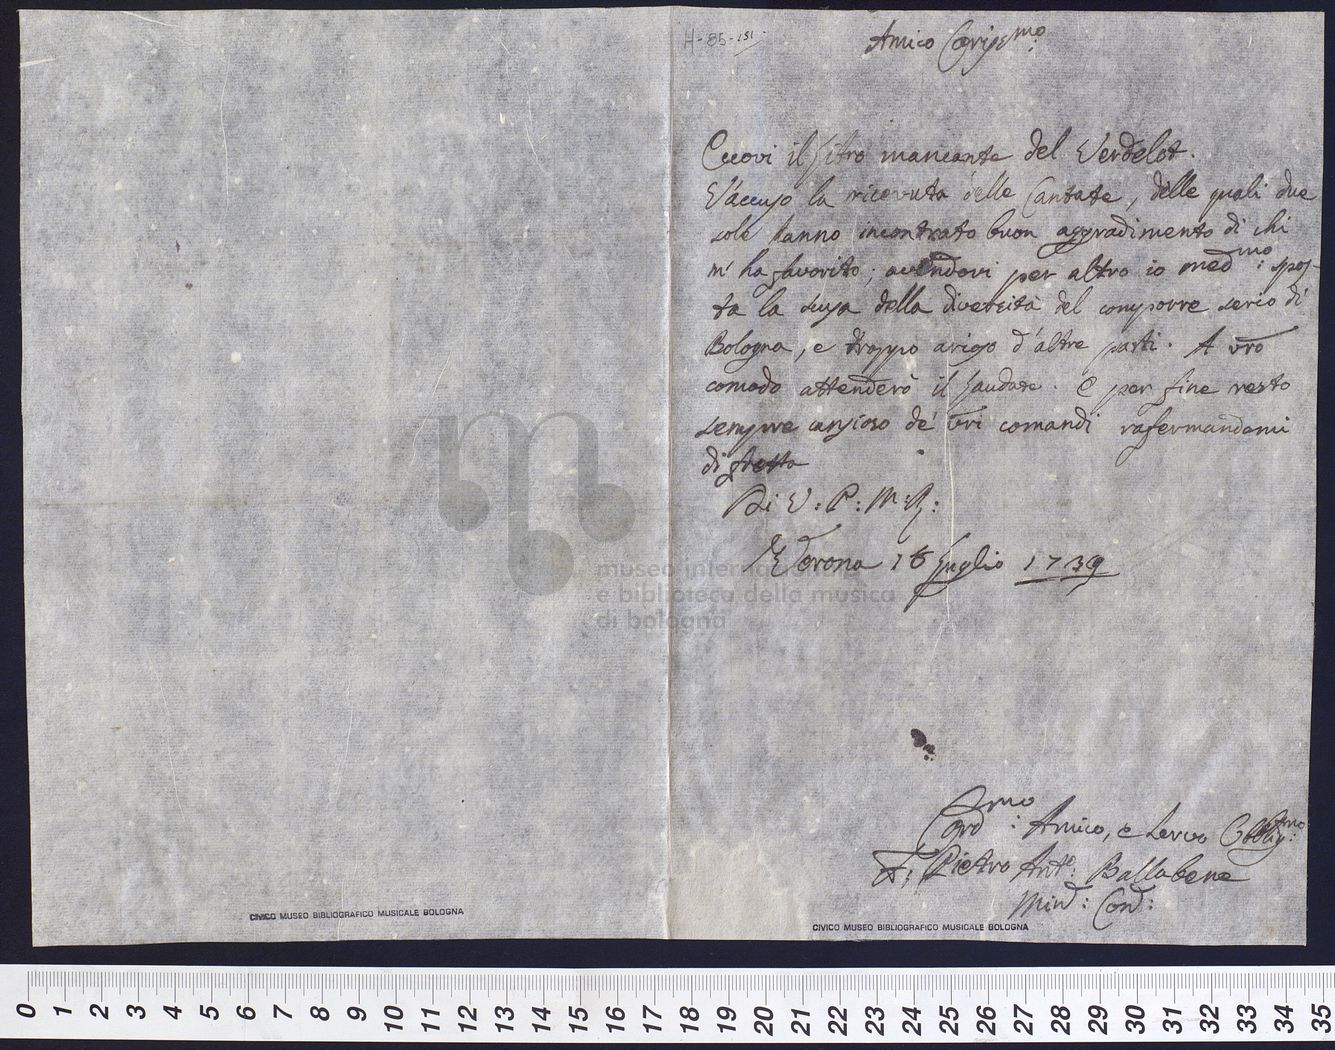 H-85-151-
Amico Cariss.mo
Eccovi il Libro mancante del Verdelot.
V'accuso la ricevuta delle Cantate, delle quali due
sole hanno incontrato buon aggradimento di chi
m'ha favorito; avendovi per altro io med.mo: spos-
ta la scusa della diversità del comporre serio di
Bologna, e troppo arioso d'altre parti. A vro
comodo attenderò il Laudate. E per fine resto
sempre ansioso de' vri comandi rafermandomi
di fretta
Di V: P: M: R:
Verona 16 Luglio 1739
Cord.mo: Amico, e Servo Obblig.mo:
F: Pietro Ant.o: Ballabene
Min: Con:
museo internazionale
e biblioteca della musica
di bologna
CIVICO MUSEO BIBLIOGRAFICO MUSICALE BOLOGNA
CIVICO MUSEO BIBLIOGRAFICO MUSICALE BOLOGNA
0 1 2 3 4 5 6 7 8 9 10 11 12 13 14 15 16 17 18 19 20 21 22 23 24 25 26 27 28 29 30 31 32 33 34 35